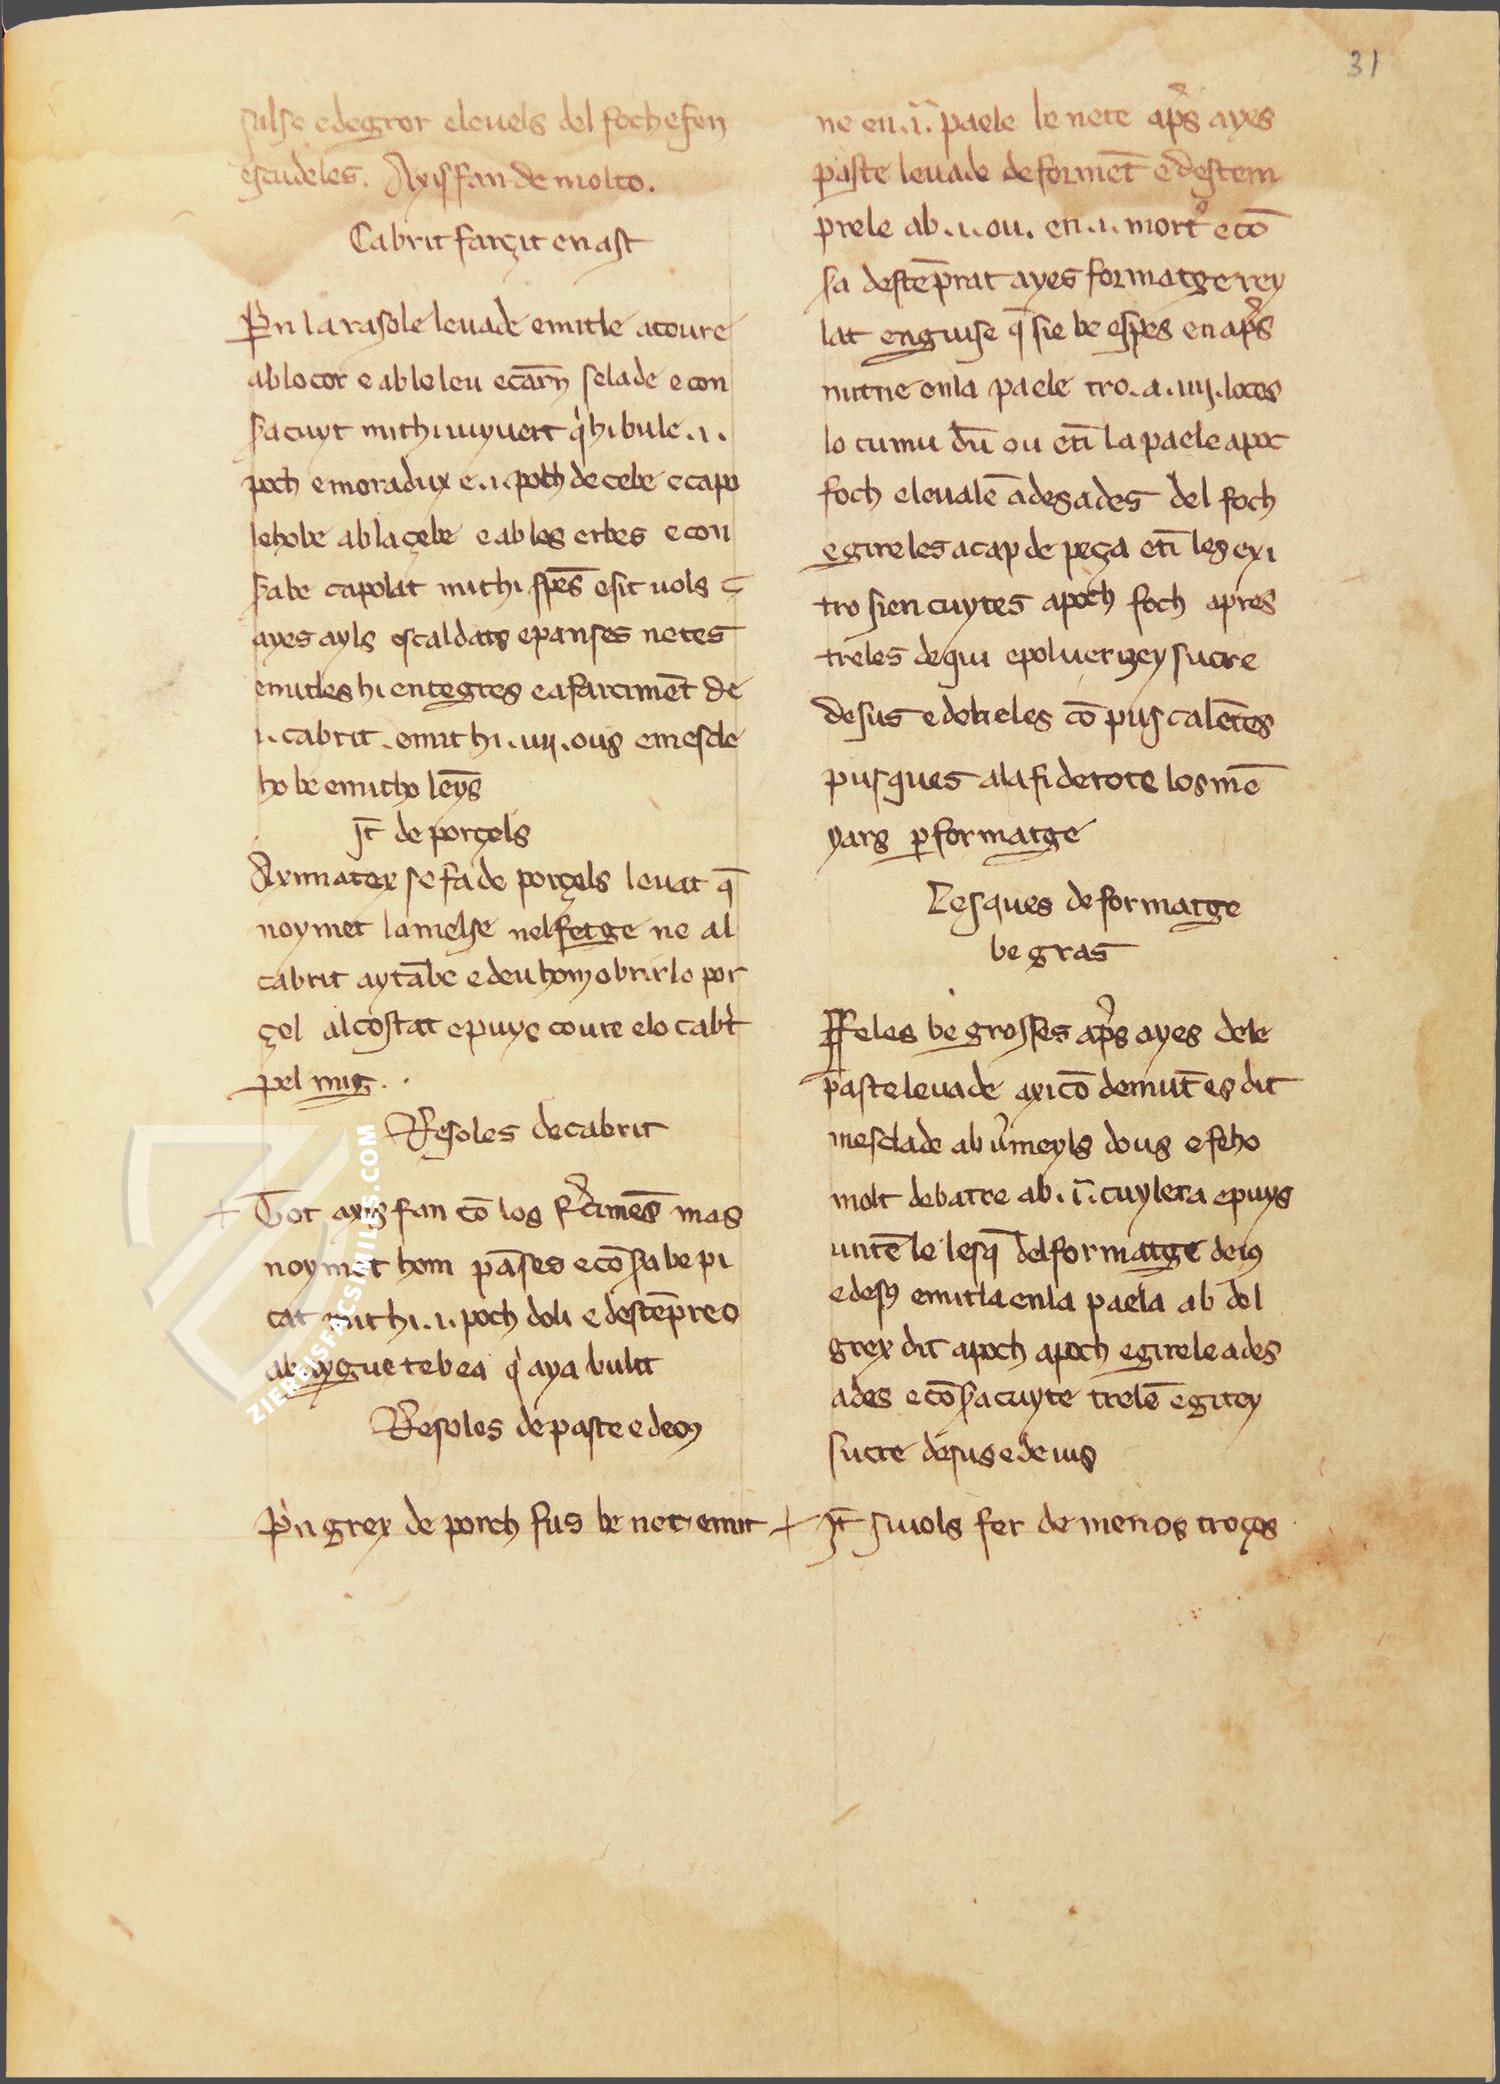 31
salse e de gror e leuels del foch e fen
escudeles. Axis fan de molto.
Cabrit farçit en ast
Pn la rasole leuade e mitle a coure
ab lo cor e ab lo leu e carn̄ selade e con
sa cuyt mit hi iuyuert q̇ hi bule .i.
poch e moradux e .i. poch de cebe e capo
le ho be ab la çebe e ab les erbes e con
sa be capolat mit hi sp̄es e sit uols
ayes ayls escaldats e panses netes
e mitles hi entegres e a farcimēt de
.i. cabrit. e mit hi .iiij. ous e mescle
ho be e mitho lēys
Jt̄ de porçels
Aximatex se fa de porçels leuat q̄
noy met la melse nel fetge ne al
cabrit aytābe e deu hom obrir lo por
çel al costat e puys coure e lo cabt̓
pel mig.
Resoles de cabrit
Tot axis fan cō los farcimēs mas
noy met hom pāses e cō sa be pi
cat mit hi .i. poch doli e destēpreo
ab aygue tebea q̇ aya bulit
Resoles de paste e deous
Pn grex de porch fus be net e mit
ne en .ī. paele be nete ap̓s ayes
paste leuade de formēt e destem
prele ab .i. ou. en .i. mort̊ e cō
sa destēprat ayes formatge rey
lat en guise q̄ sie be espes en ap̓s
mitne en la paele tro .a. iiij. loces
lo cumu dū ou etī la paele a poc
foch e leualē ades ades del foch
e gireles a cap de peça etī les axi
tro sien cuytes a poch foch apres
treles de qui e poluerizey sucre
desus e doneles cō pus calētes
pusques a la fi de tote los mē
yars p formatge
Lesques de formatge
be gras
Ffeles be grosses ap̓s ayes dele
paste leuade axi cō demūt es dit
mesclade ab v̓meyls dous e feho
molt de batre ab .ī. cuylera e puys
untē le lesq̄ del formatge deius
e desus e mitla en la paela ab del
grex dit a poch a poch e girele ades
ades e cō sa cuyte trelē e gitey
sucre desus e deius
Jt̄ si uols fer de menos troços
ZIEREISFACSIMILES.COM